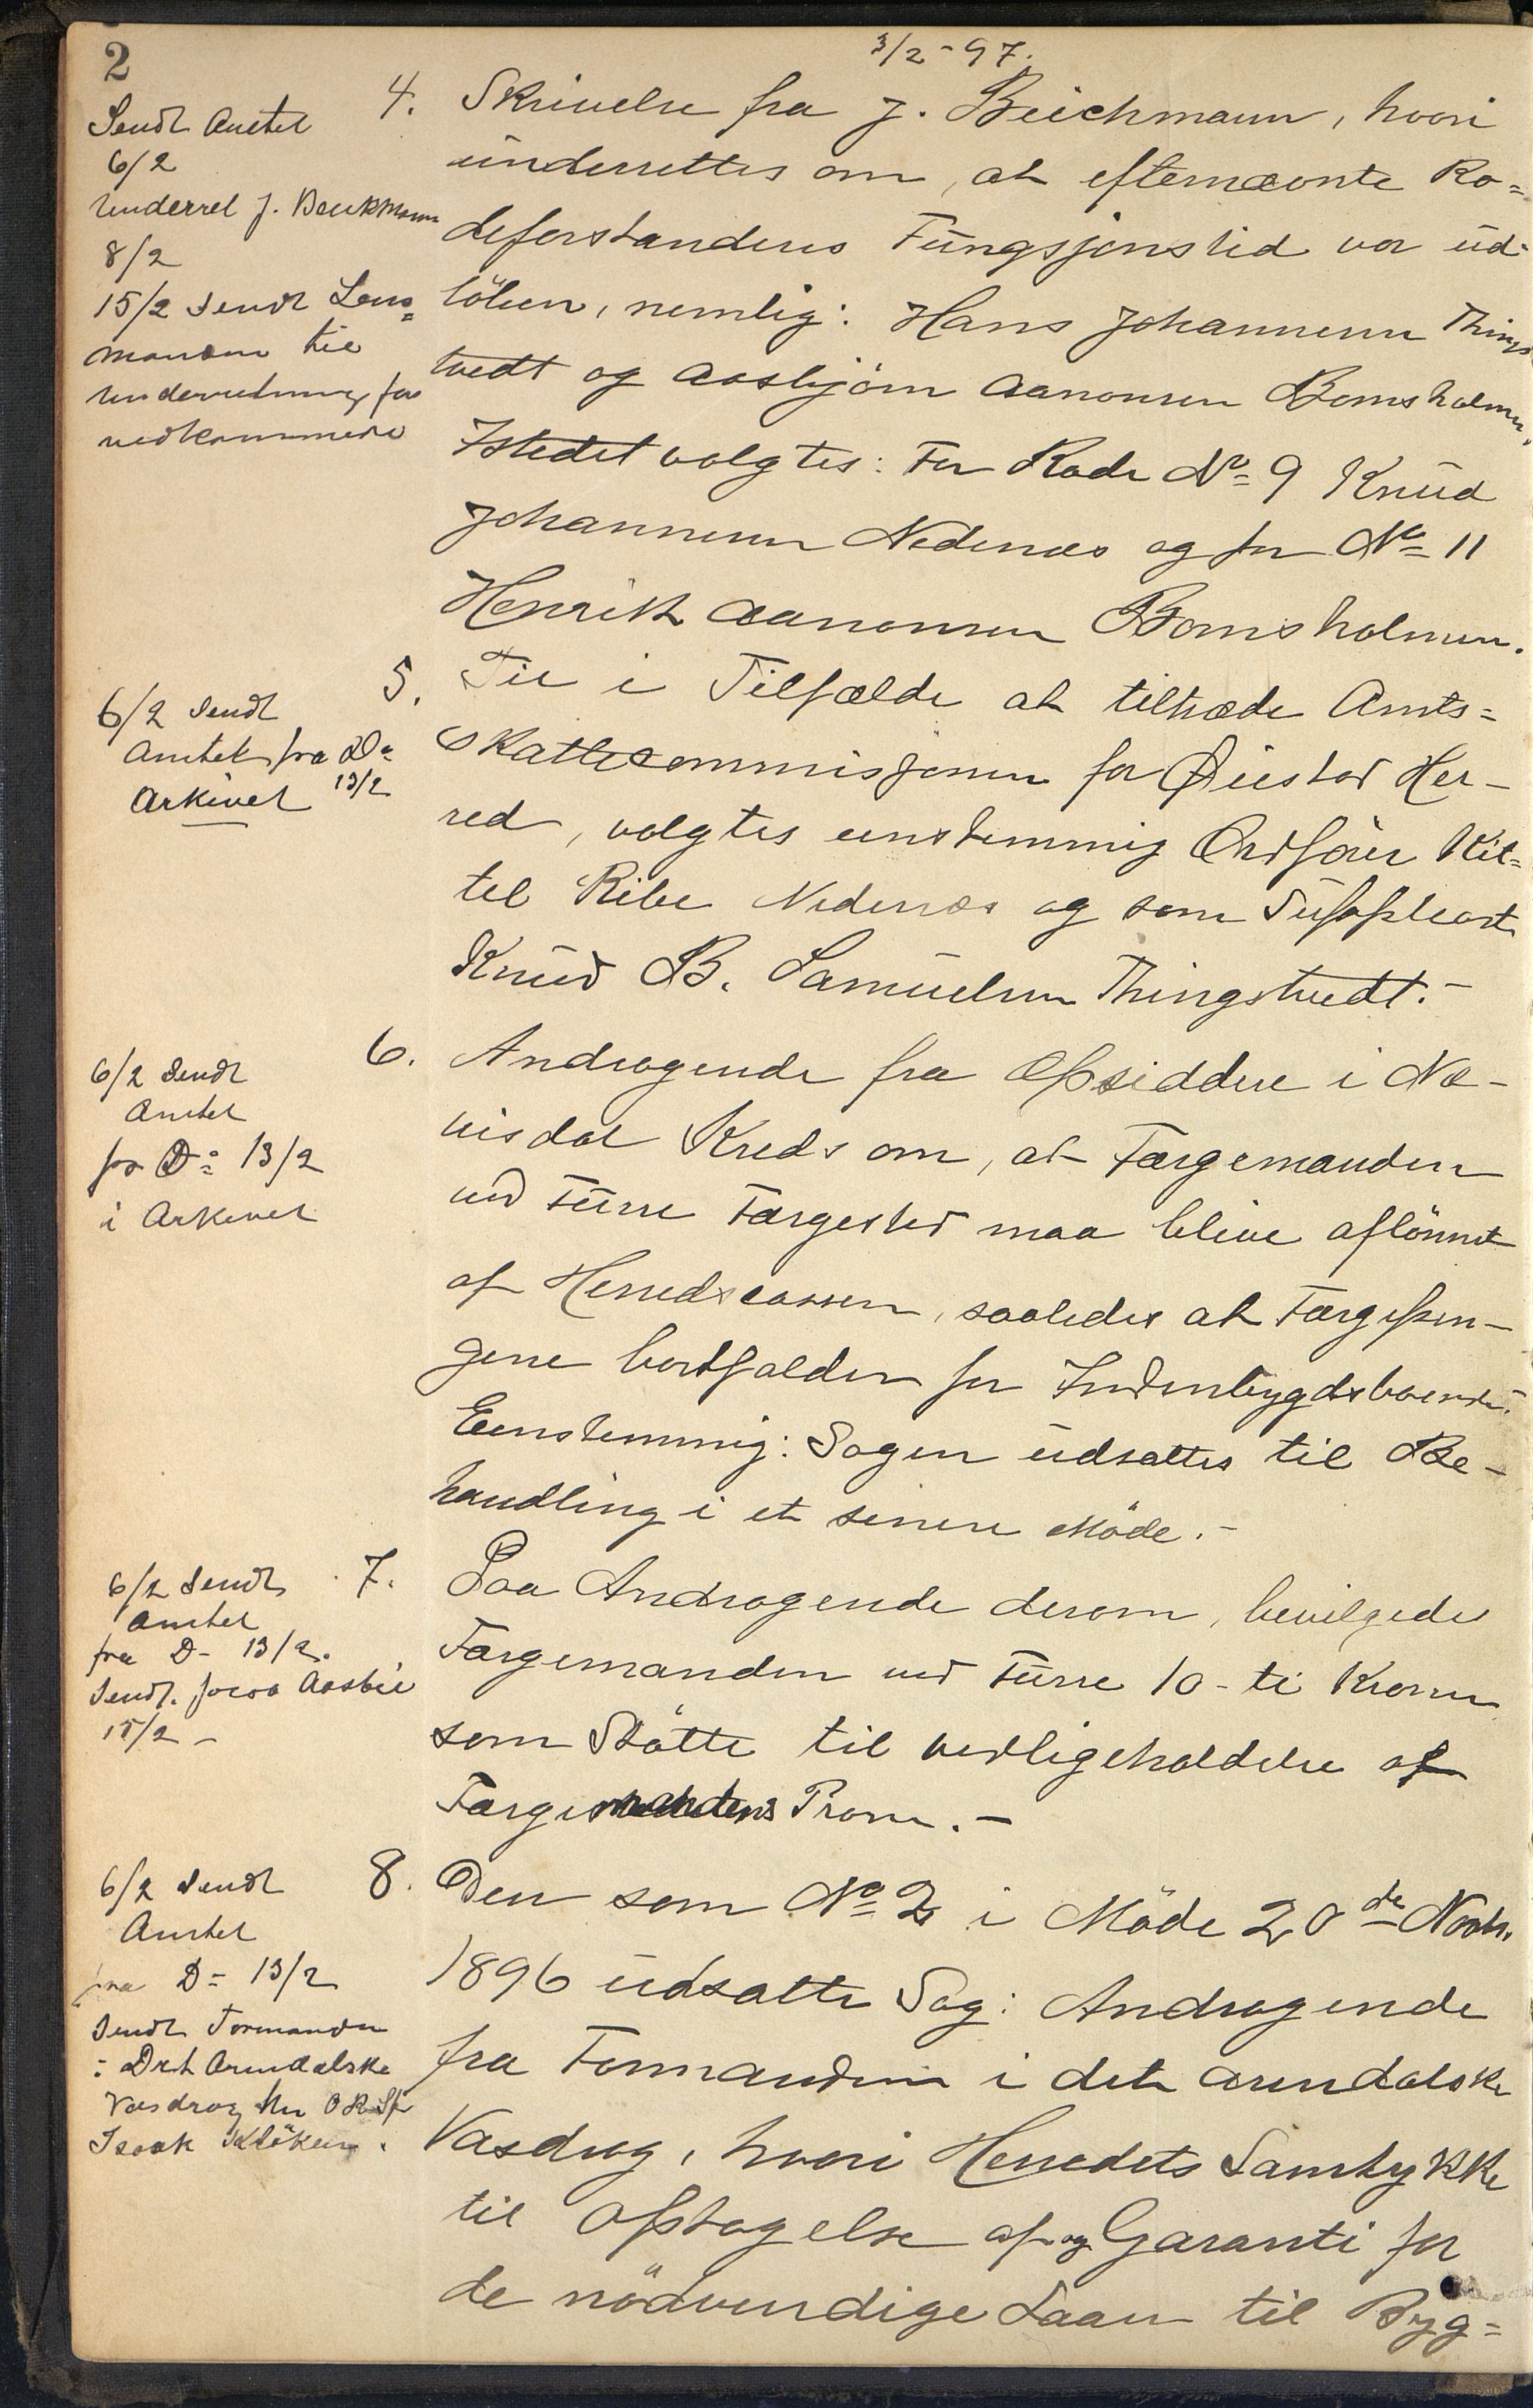 2
3/2-97.
Sendt Amtet
6/2
Underret J. Beichmann
8/2
15/2 Sendt Lens=
manden til
Underretning for
vedkommende
4. Skrivelse fra J. Beichmann, hvori
underrettes om, at efternævnte Ro=
deforstanderes Fungsjonstid var ud=
löben, nemlig: Hans Johannesen Things
tvedt og Aasbjörn Aanonsen Bomsholmen,
Istedet valgtes: For Rode No 9 Knud
Johannesen Nedenæs og for No 11
Henrik Aanonsen Bomsholmen.
6/2 Sendt
Amtet fra Do
13/2
Arkivet
5. Til i Tilfælde at tiltræde Amts=
skattecommisjonen for Øiestad Her-
red, valgtes eenstemmig Ordförer Kit=
tel Ribe Nedenæs og som Suppleant
Knud B. Samuelsen Thingstvedt.-
6/2 Sendt
Amtet
fra Do 13/2
i Arkivet
6. Andragende fra Opsiddere i Næ-
visdal Kreds om, at Færgemanden
ved Furre Færgested maa blive aflönnet
af Herredscassen, saaledes at Færgepen-
gene bortfalder for Indenbygdsboende.-
Eenstemmig: Sagen udsattes til Be-
handling i et senere Möde.-
6/2 Sendt
Amtet
fra D- 13/2.
Sendt Aasbie
15/2 -
7. Paa Andragende derom, bevilgedes
Færgemanden ved Furre 10-ti Kroner
som Stötte til vedligeholdelse af
Færgemandens Pram.-
6/2 Sendt
Amtet
fra D= 13/2
Sendt Formanden
i Det Arendalske
Vasdrag Hr
Isaak Klöker.
8. Den som No 2 i Möde 20de Novbr.
1896 udsatte Sag: Andragende
fra Formanden i det arendalske
Vasdrag, hvori Herredets Samtykke
til Optagelse af og Garanti for
de nödvendige Laan til Byg=